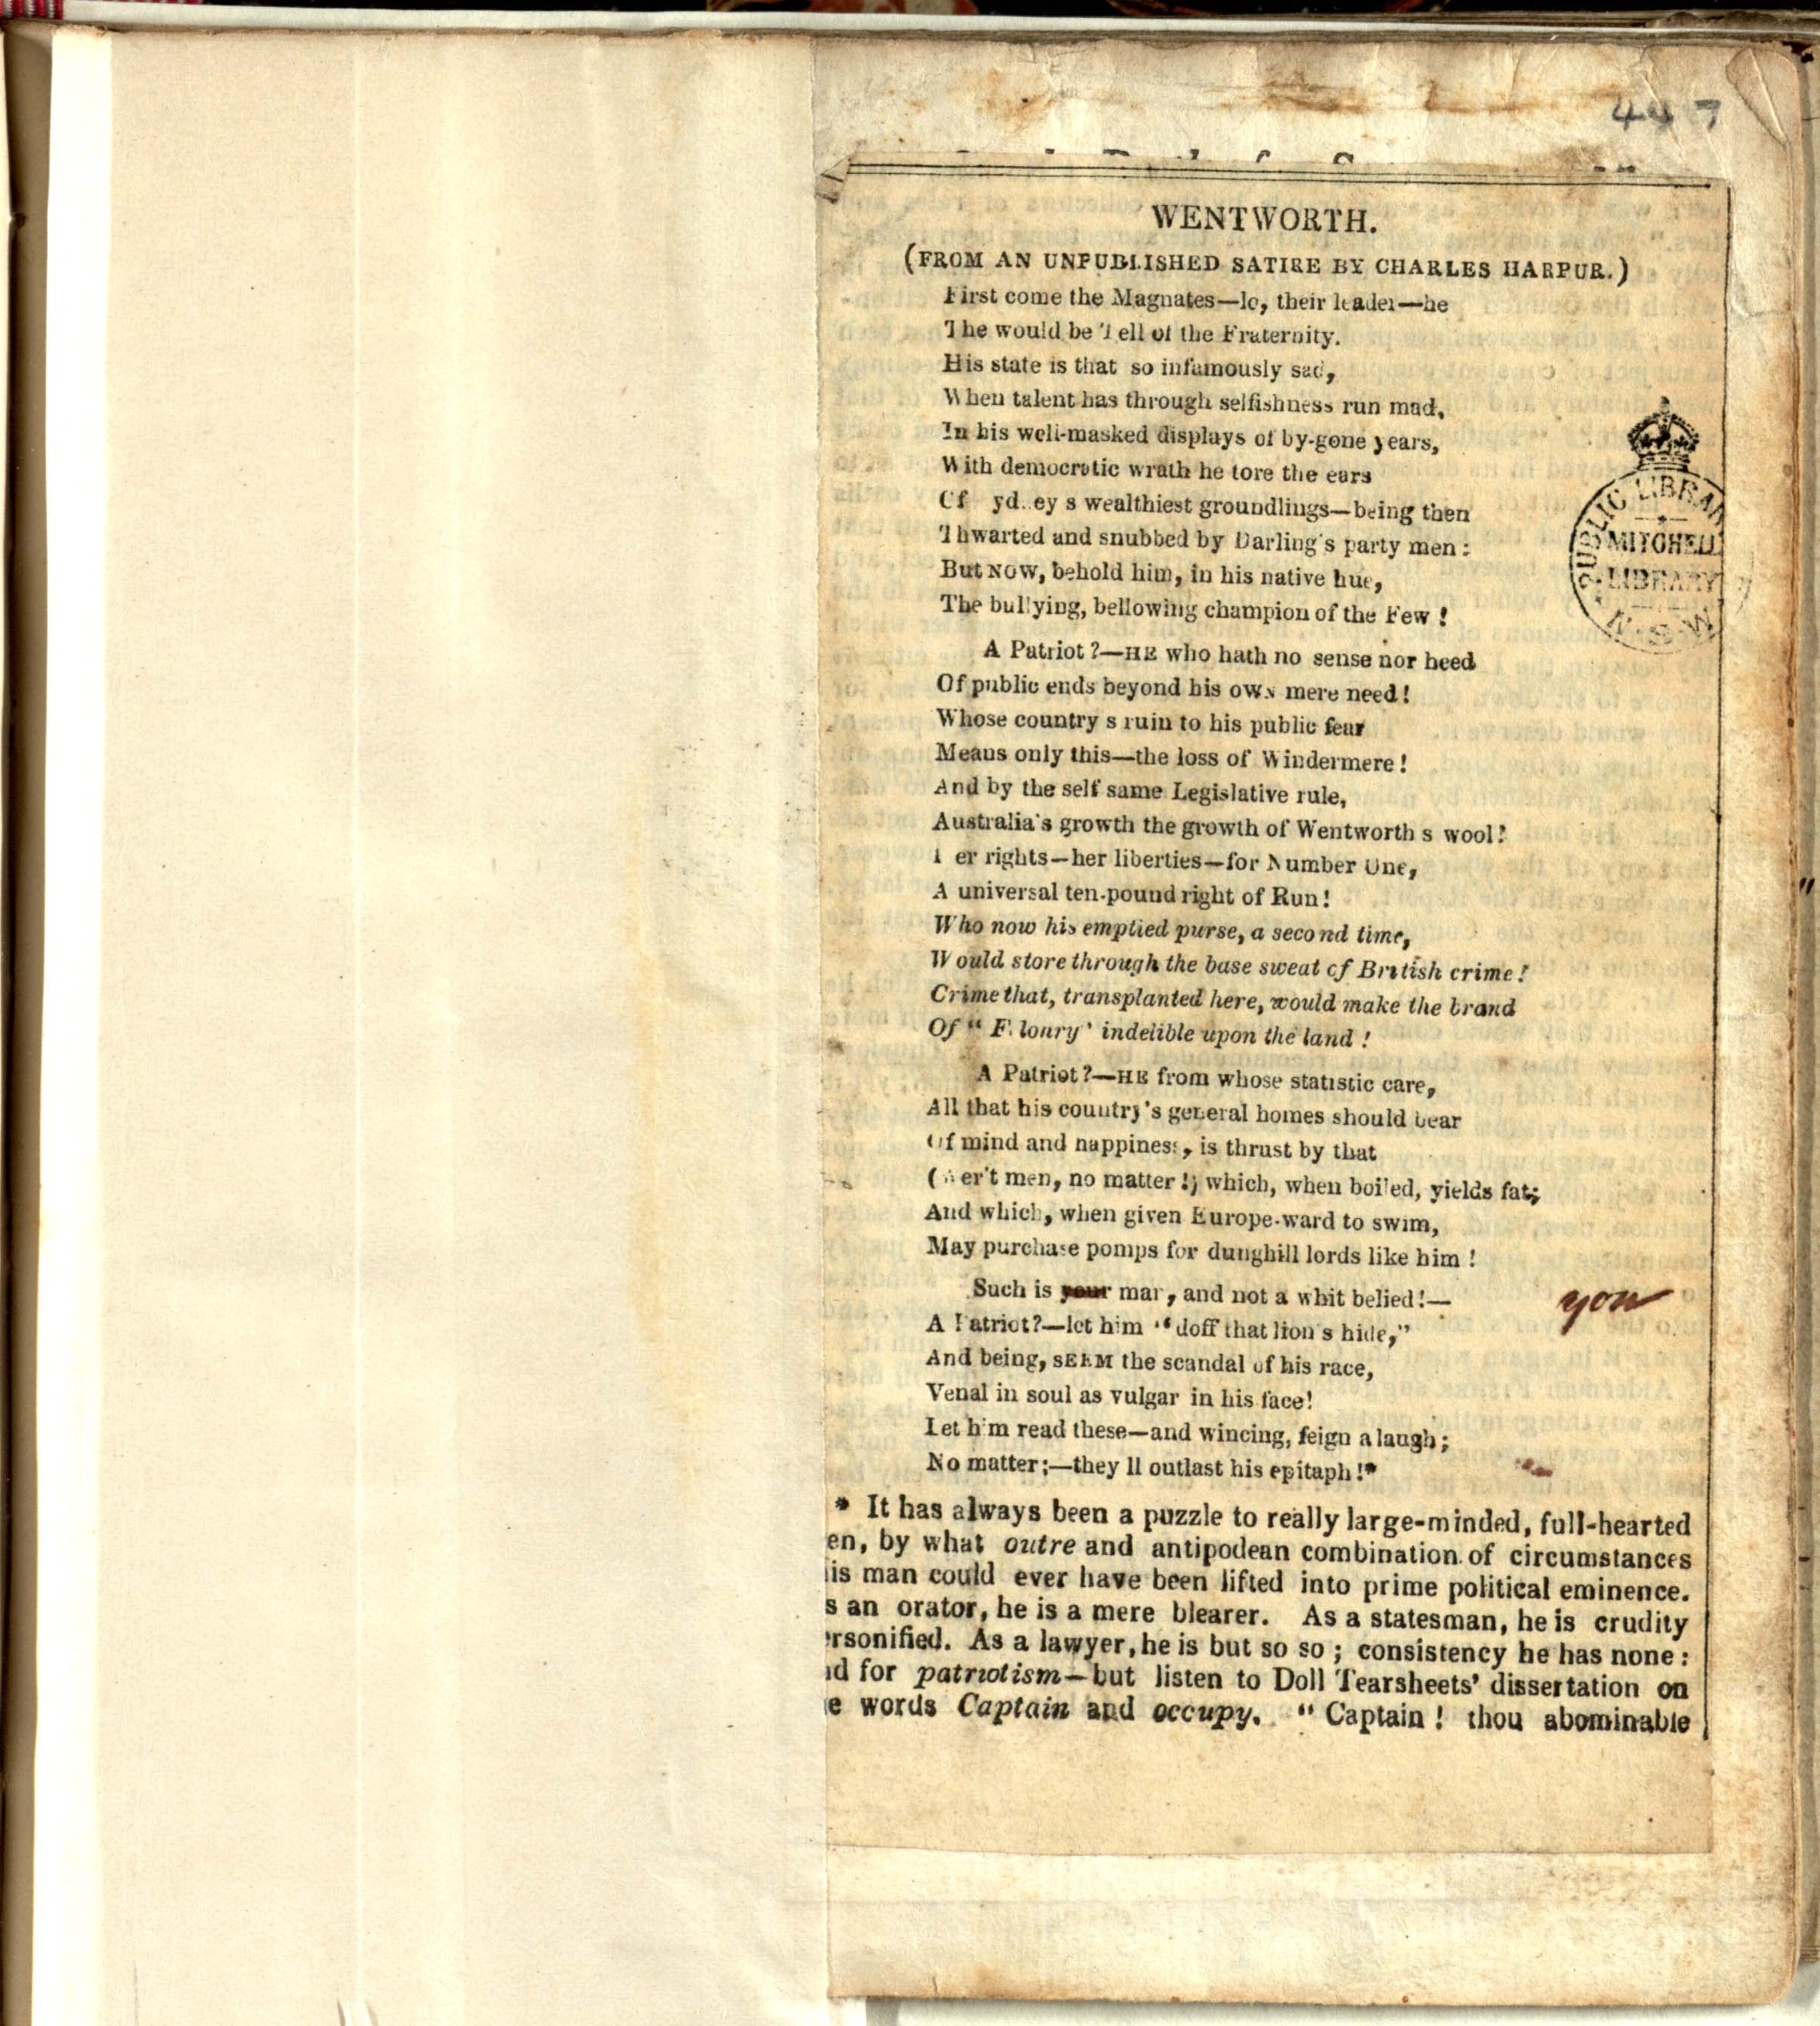 447
WENTWORTH.
(FROM AN UNPUBLISHED SATIRE BY CHARLES HARPUR.)
First come the Magnates—lo, their leader—he
The would be Tell of the Fraternity.
His state is that so infamously sad,
When talent has through selfishness run mad,
In his well-masked displays of by-gone years,
With democratic wrath he tore the ears
Of yd ey s wealthiest groundlings—being then
Thwarted and snubbed by Darling's party men:
But NOW, behold him, in his native hue,
The bullying, bellowing champion of the Few!
A Patriot?—HE who hath no sense nor heed
Of public ends beyond his own mere need!
Whose country s ruin to his public fear
Means only this—the loss of Windermere!
And by the self same Legislative rule,
Australia's growth the growth of Wentworth s wool!
er rights—her liberties—for Number One,
A universal ten-pound right of Run!
Who now his emptied purse, a second time,
Would store through the base sweat of British crime!
Crime that, transplanted here, would make the brand
Of "F lonry' indelible upon the land!
A Patriot?—HE from whose statistic care,
All that his country's general homes should bear
Of mind and happiness, is thrust by that
( er't men, no matter!) which, when boiled, yields fat;
And which, when given Europe-ward to swim,
May purchase pomps for dunghill lords like him!
Such is your man, and not a whit belied!— you
A Patriot?—let him "doff that lion s hide,"
And being, SEEM the scandal of his race,
Venal in soul as vulgar in his face!
Let h m read these—and wincing, feign a laugh;
No matter;—they ll outlast his epitaph!*
* It has always been a puzzle to really large-minded, full-hearted
en, by what outre and antipodean combination of circumstances
is man could ever have been lifted into prime political eminence.
s an orator, he is a mere blearer. As a statesman, he is crudity
rsonified. As a lawyer, he is but so so; consistency he has none:
d for patriotism—but listen to Doll Tearsheets' dissertation on
e words Captain and occupy. "Captain! thou abominable
PUBLIC LIBRAR
MITCHELL
LIBRARY
N.S.W.